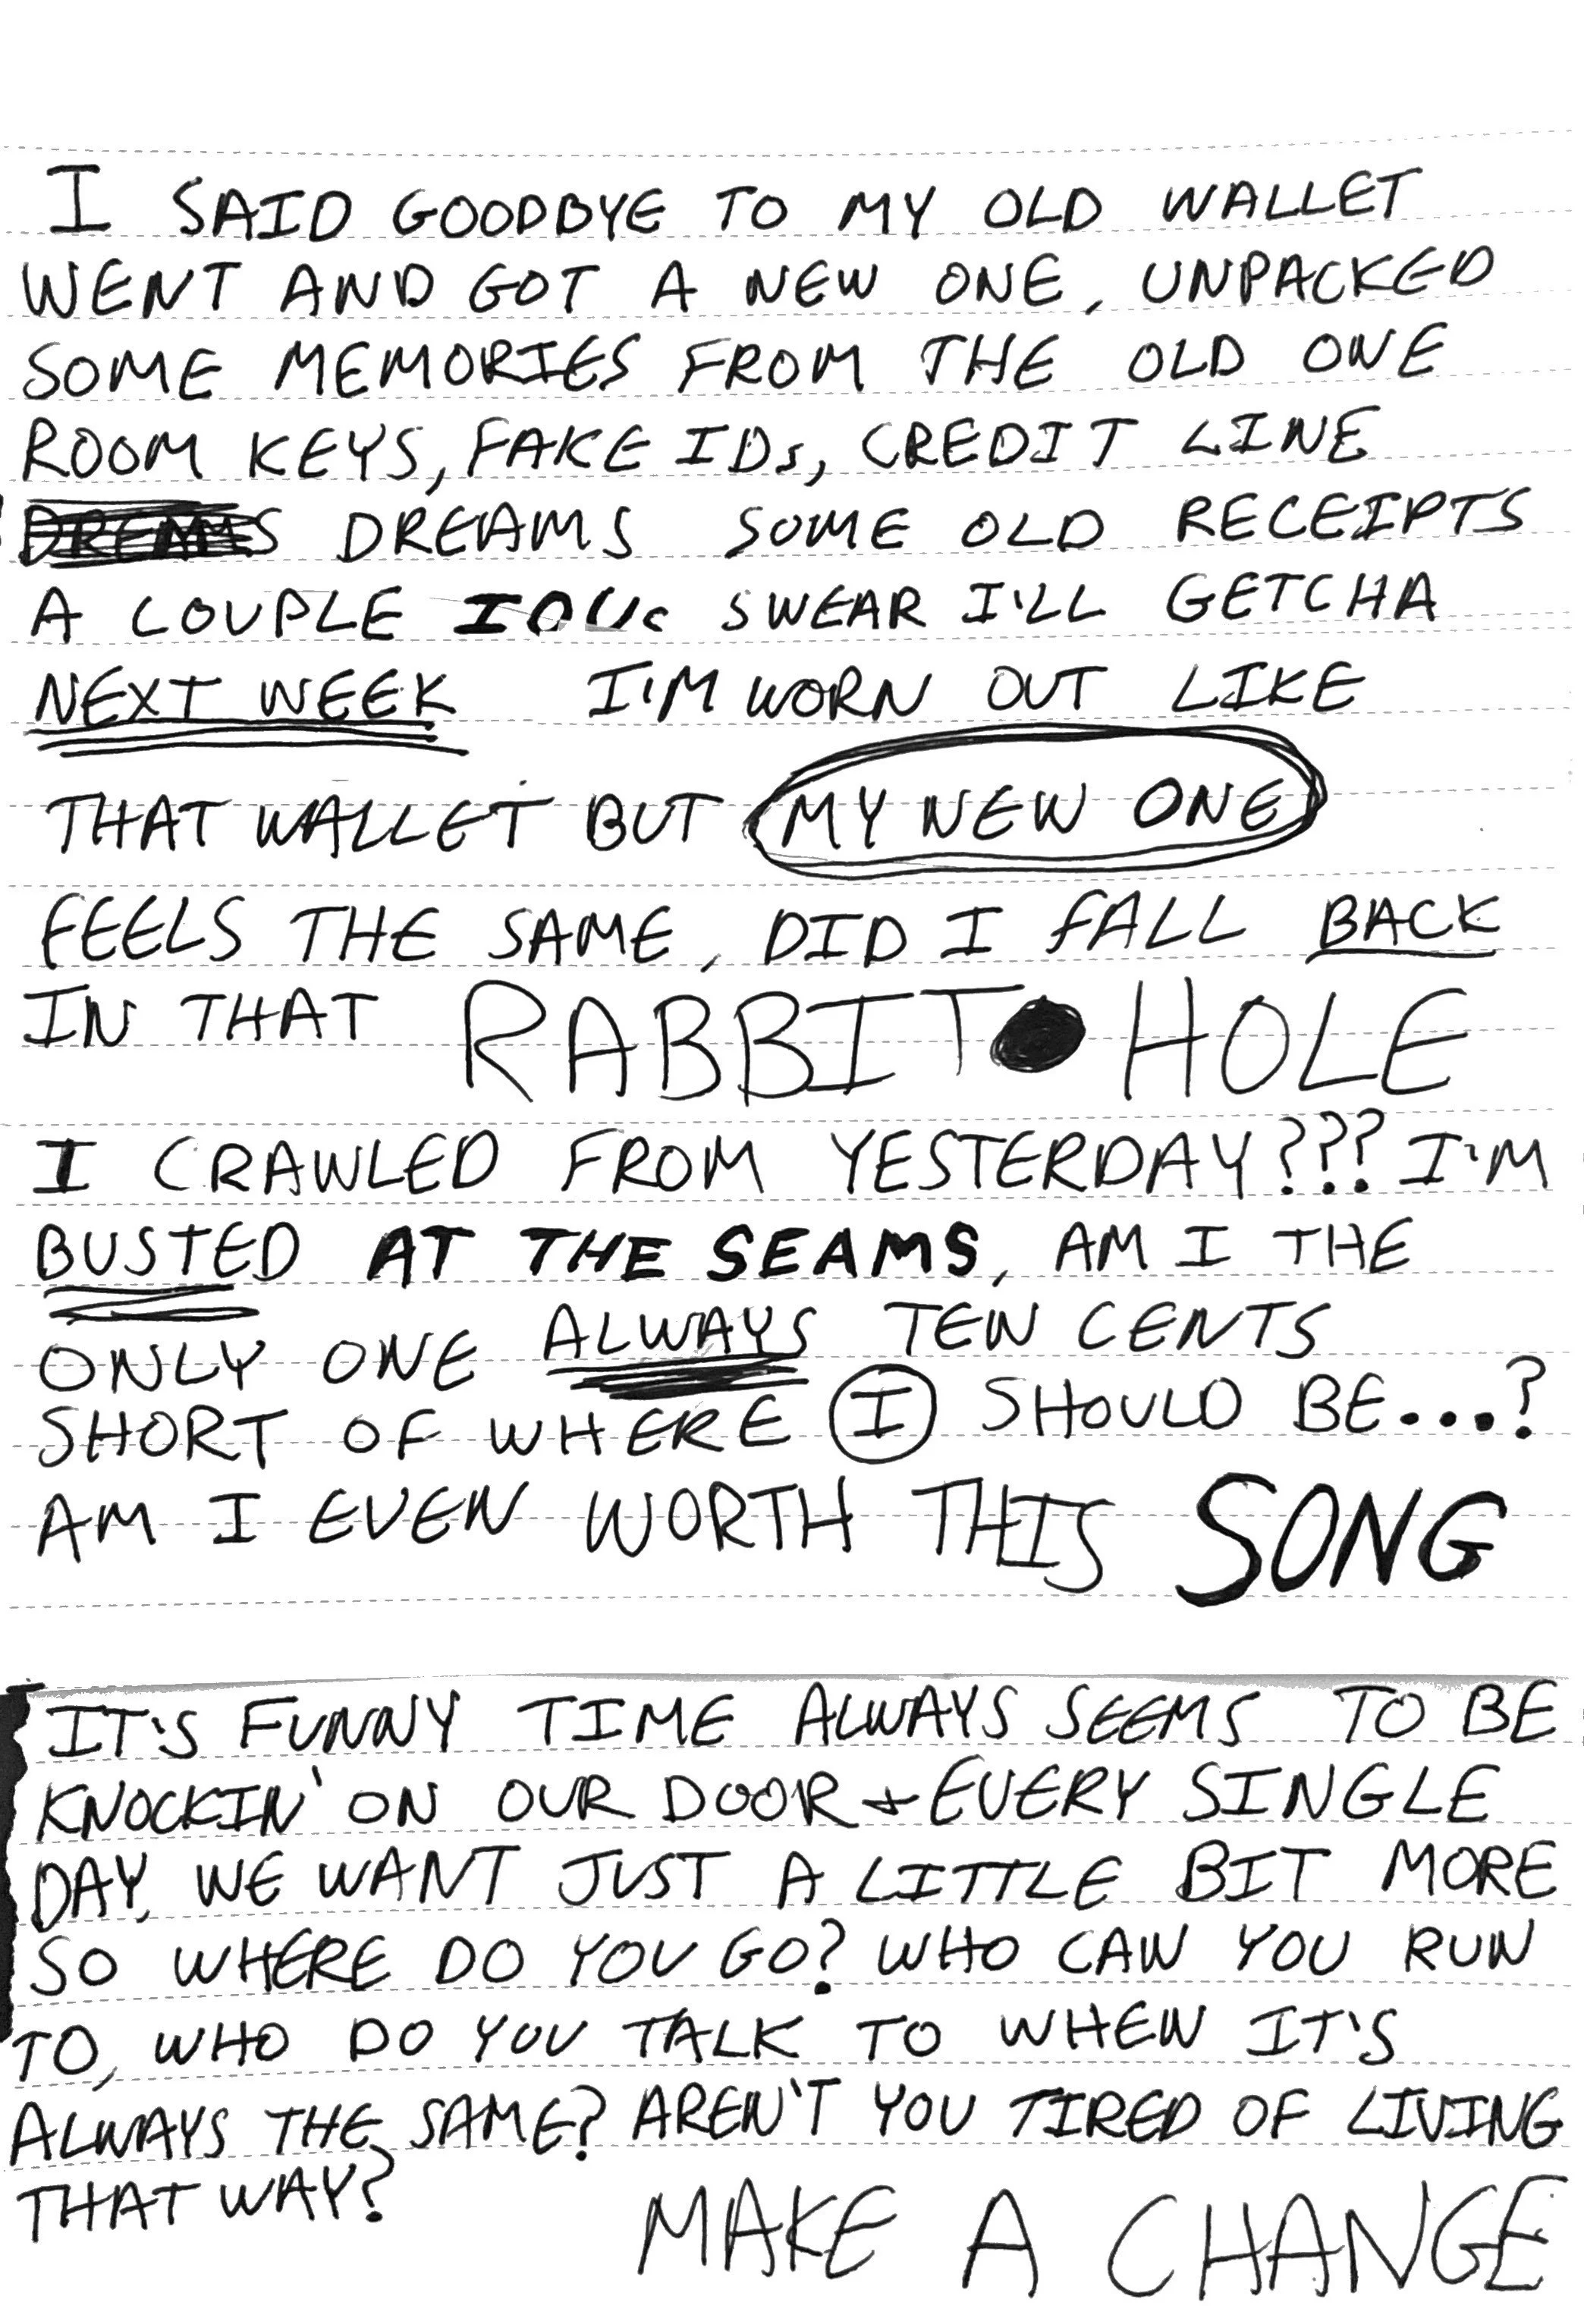 I SAID GOODBYE TO MY OLD WALLET
WENT AND GOT A NEW ONE, UNPACKED
SOME MEMORIES FROM THE OLD ONE
ROOM KEYS, FAKE IDs, CREDIT LINE
DREAMS DREAMS SOME OLD RECEIPTS
A COUPLE IOUs SWEAR I'LL GETCHA
NEXT WEEK I'M WORN OUT LIKE
THAT WALLET BUT MY NEW ONE
FEELS THE SAME, DID I FALL BACK
IN THAT RABBIT HOLE
I CRAWLED FROM YESTERDAY??? I'M
BUSTED AT THE SEAMS, AM I THE
ONLY ONE ALWAYS TEN CENTS
SHORT OF WHERE I SHOULD BE...?
AM I EVEN WORTH THIS SONG
IT'S FUNNY TIME ALWAYS SEEMS TO BE
KNOCKIN' ON OUR DOOR + EVERY SINGLE
DAY, WE WANT JUST A LITTLE BIT MORE
SO WHERE DO YOU GO? WHO CAN YOU RUN
TO, WHO DO YOU TALK TO WHEN IT'S
ALWAYS THE SAME? AREN'T YOU TIRED OF LIVING
THAT WAY? MAKE A CHANGE